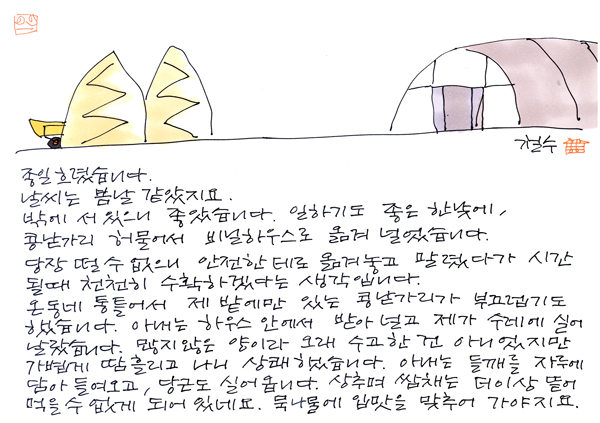 철수
종일 흐렸습니다.
날씨는 봄날 같았지요.
밖에 서 있으니 좋았습니다. 일하기도 좋은 한낮에,
콩낟가리 허물어서 비닐하우스로 옮겨 널었습니다.
당장 떨 수 없으니 안전한 데로 옮겨놓고 말렸다가 시간
될때 천천히 수확하겠다는 생각입니다.
온동네 통틀어서 제 밭에만 있는 콩낟가리가 부끄럽기도
했습니다. 아내는 하우스 안에서 받아 널고 제가 수레에 실어
날랐습니다. 많지않은 양이라 오래 수고한 건 아니었지만
가볍게 땀흘리고 나니 상쾌했습니다. 아내는 들깨를 자루에
담아 들여오고, 당근도 실어옵니다. 상추며 쌈채는 더이상 뜯어
먹을 수 없게 되어 있네요. 묵나물에 입맛을 맞추어 가야지요.